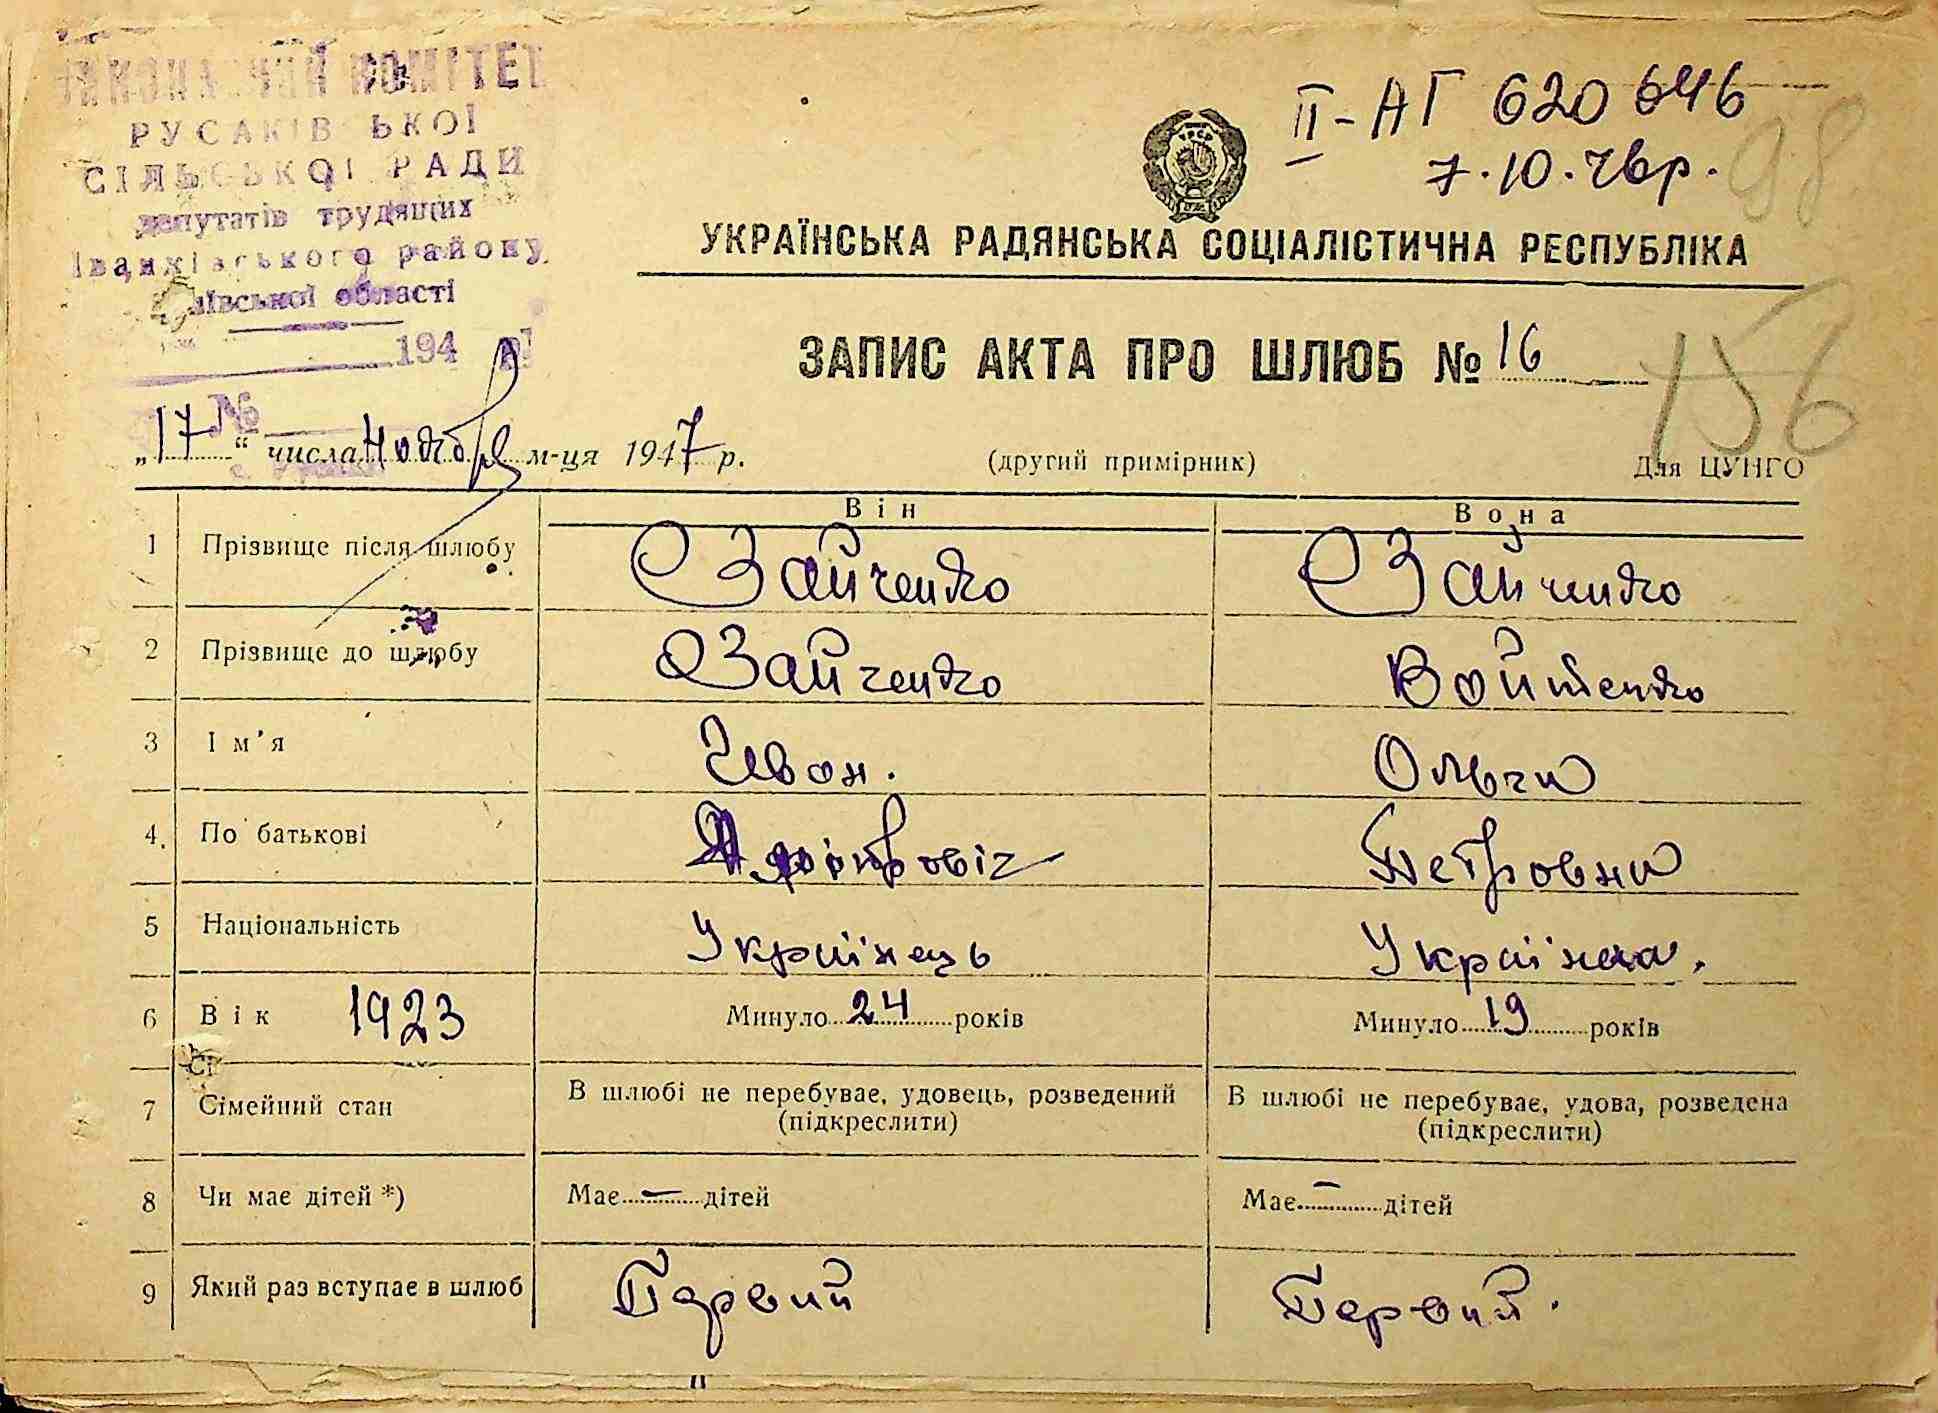 ВИКОНАВЧИЙ КОМІТЕТ
РУСАКІВСЬКОЇ
СІЛЬСЬКОЇ РАДИ
депутатів трудящих
Іванківського району
Київської області
194 р.
№
ІІ-АГ 620646
7.10.
98
УРСР
УКРАЇНСЬКА РАДЯНСЬКА СОЦІАЛІСТИЧНА РЕСПУБЛІКА
ЗАПИС АКТА ПРО ШЛЮБ № 16
156
„17“ числа Ноября м-ця 1947 р.
(другий примірник)
Для ЦУНГО
Він Вона
1 Прізвище після шлюбу Зайченко Зайченко
2 Прізвище до шлюбу Зайченко Войтенко
3 Ім’я Иван. Ольга
4. По батькові Петровна
5 Національність Українець Українка.
6 Вік 1923 Минуло 24 років Минуло 19 років
Сі
7 Сімейний стан В шлюбі не перебуває, удовець, розведений (підкреслити) В шлюбі не перебуває, удова, розведена (підкреслити)
8 Чи має дітей *) Має — дітей Має — дітей
9 Який раз вступає в шлюб Первий Первий.